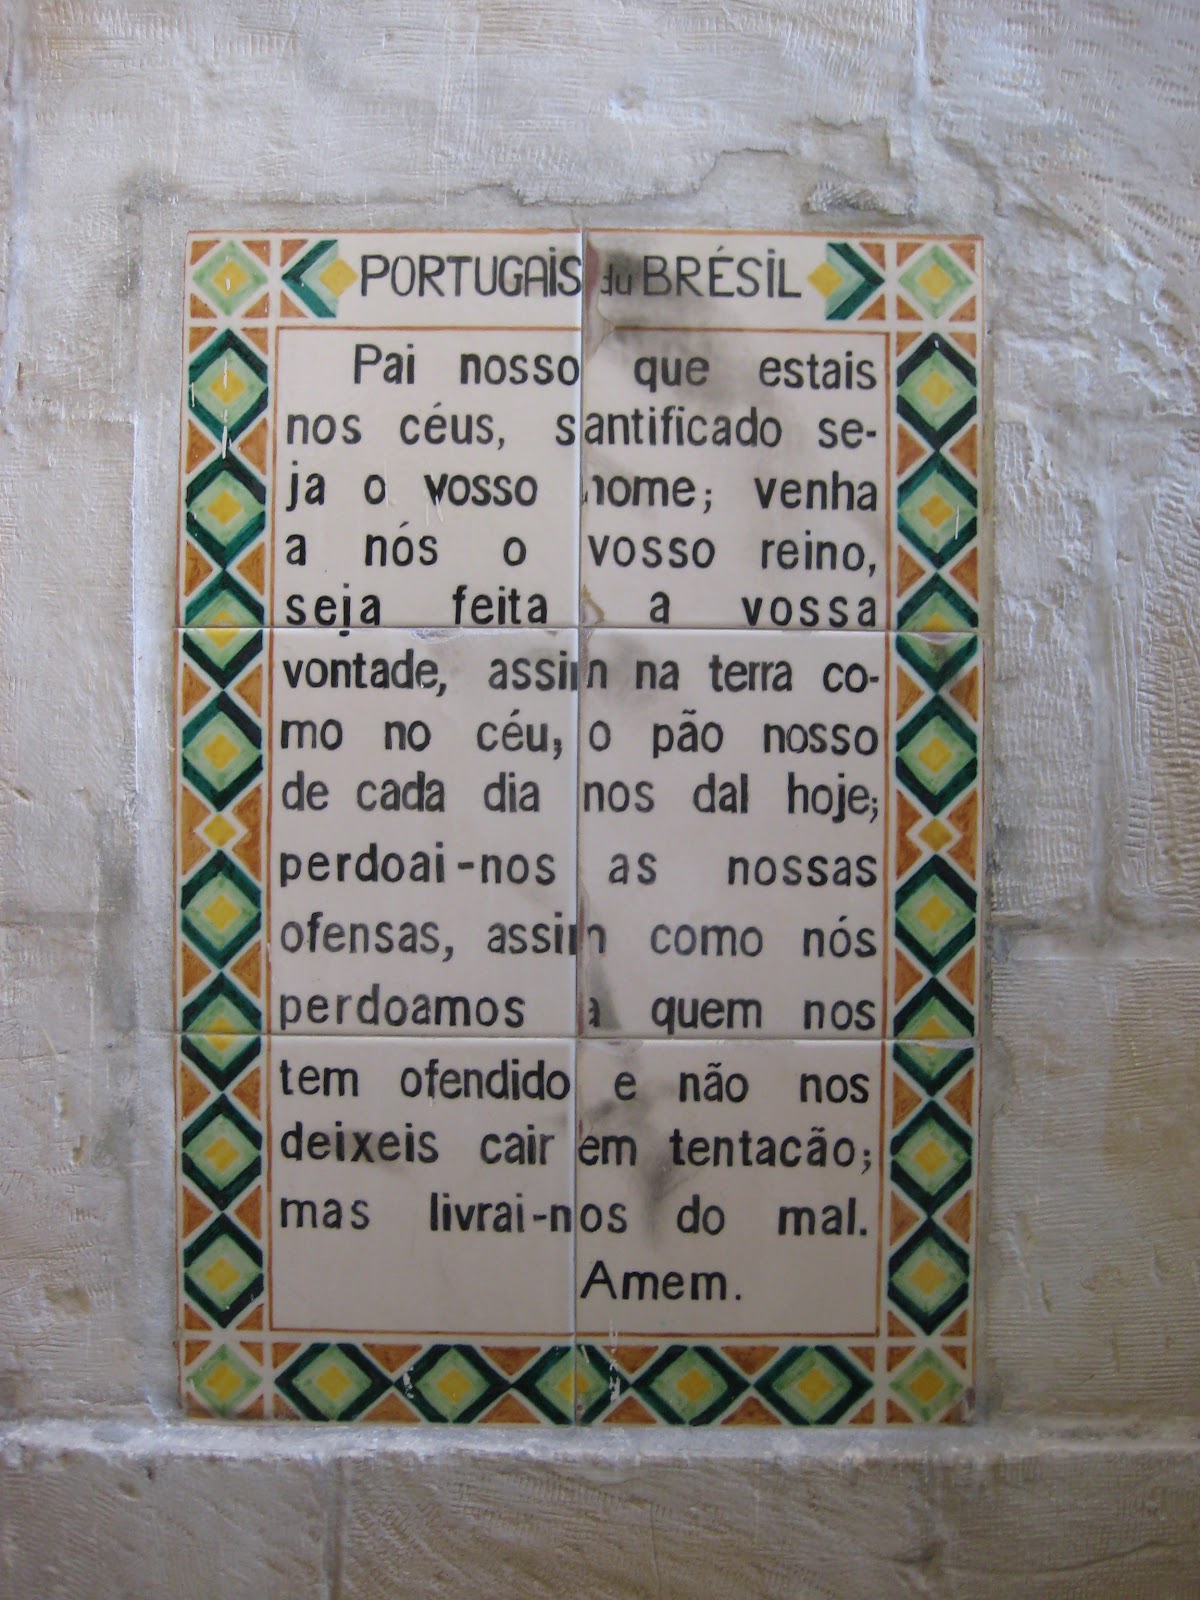 PORTUGAIS du BRÉSIL
Pai nosso que estais
nos céus, santificado se-
ja o vosso nome; venha
a nós o vosso reino,
seja feita a vossa
vontade, assim na terra co-
mo no céu; o pão nosso
de cada dia nos dal hoje;
perdoai-nos as nossas
ofensas, assim como nós
perdoamos a quem nos
tem ofendido e não nos
deixeis cair em tentacão;
mas livrai-nos do mal.
Amem.